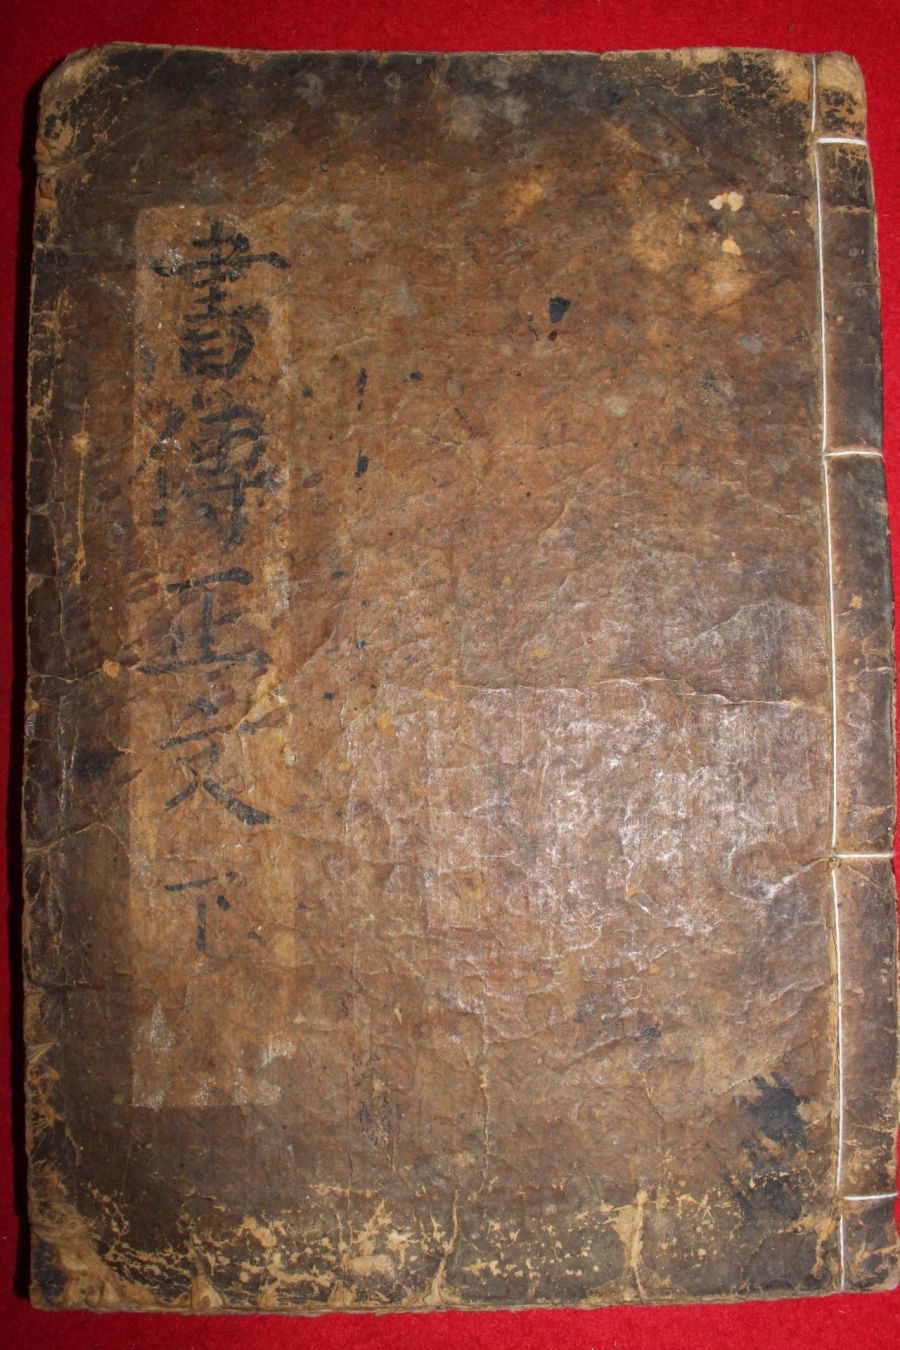 書傳正文下